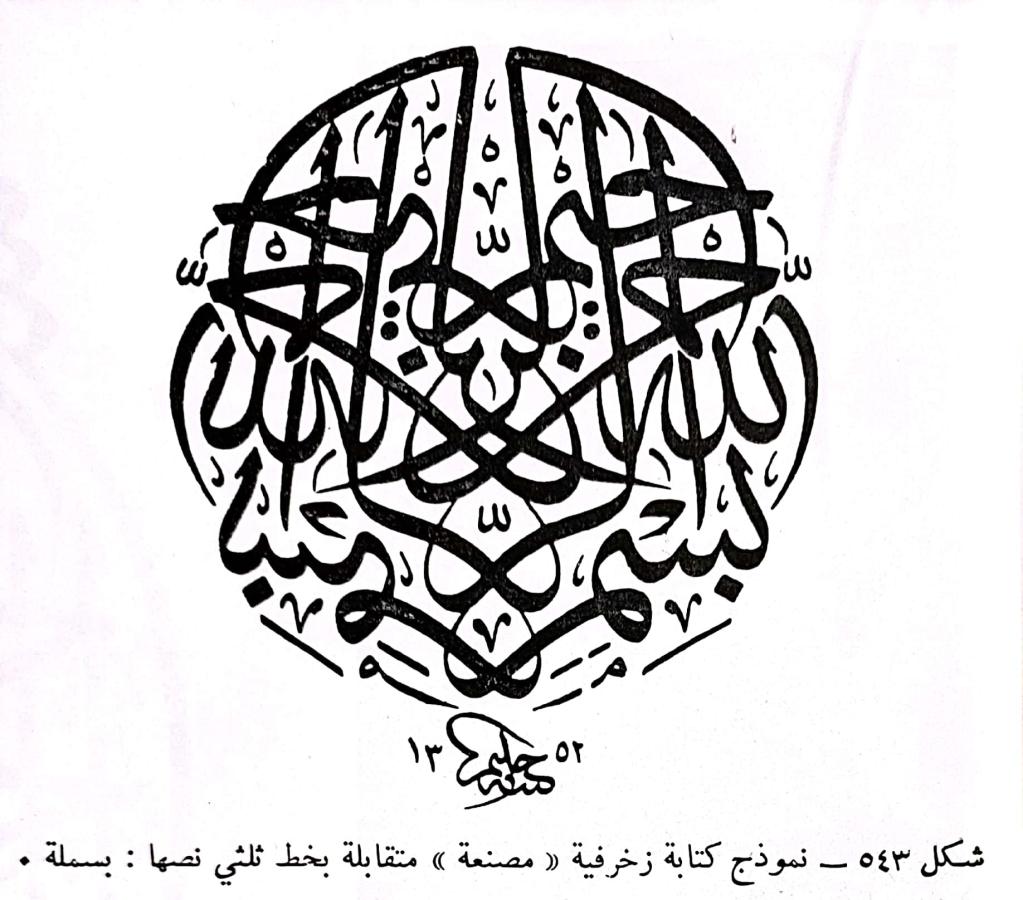 بسم الله الرحمن الرحيم
كتبه حليم ١٣٥٢
شكل ٥٤٣ ــ نموذج كتابة زخرفية « مصنعة » متقابلة بخط ثلثي نصها : بسملة ٠